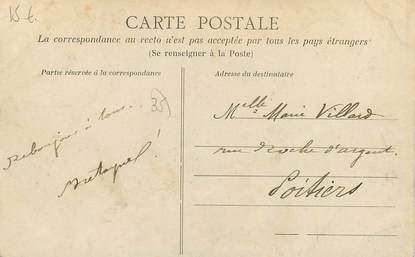 15 €
CARTE POSTALE
La correspondance au recto n'est pas acceptée par tous les pays étrangers
(Se renseigner à la Poste)
Partie réservée à la correspondance
Adresse du destinataire
35
Melle Marie Villard
rue Roche d'argent
Poitiers
à tous